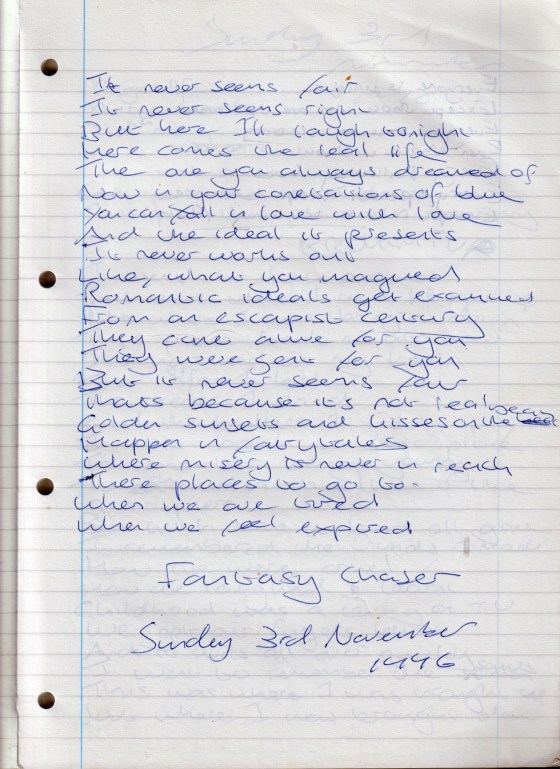 It never seems fair
It never seems right
But here I'll laugh tonight
Here comes the real life
The one you always dreamed of
Now in your conetations of blue
You can fall in love with love
And the ideal it presents
It never works out
Like, what you imagined
Romantic ideals get examined
From an escapist century
They came alive for you
They were sent for you
But it never seems fair
Thats because it's not real
Golden sunsets and kisses on the beach
Happen in fairytales
Where misery is never in reach
There places to go to.
When we are tired
When we feel expired
Fantasy Chaser
Sunday 3rd November
1996